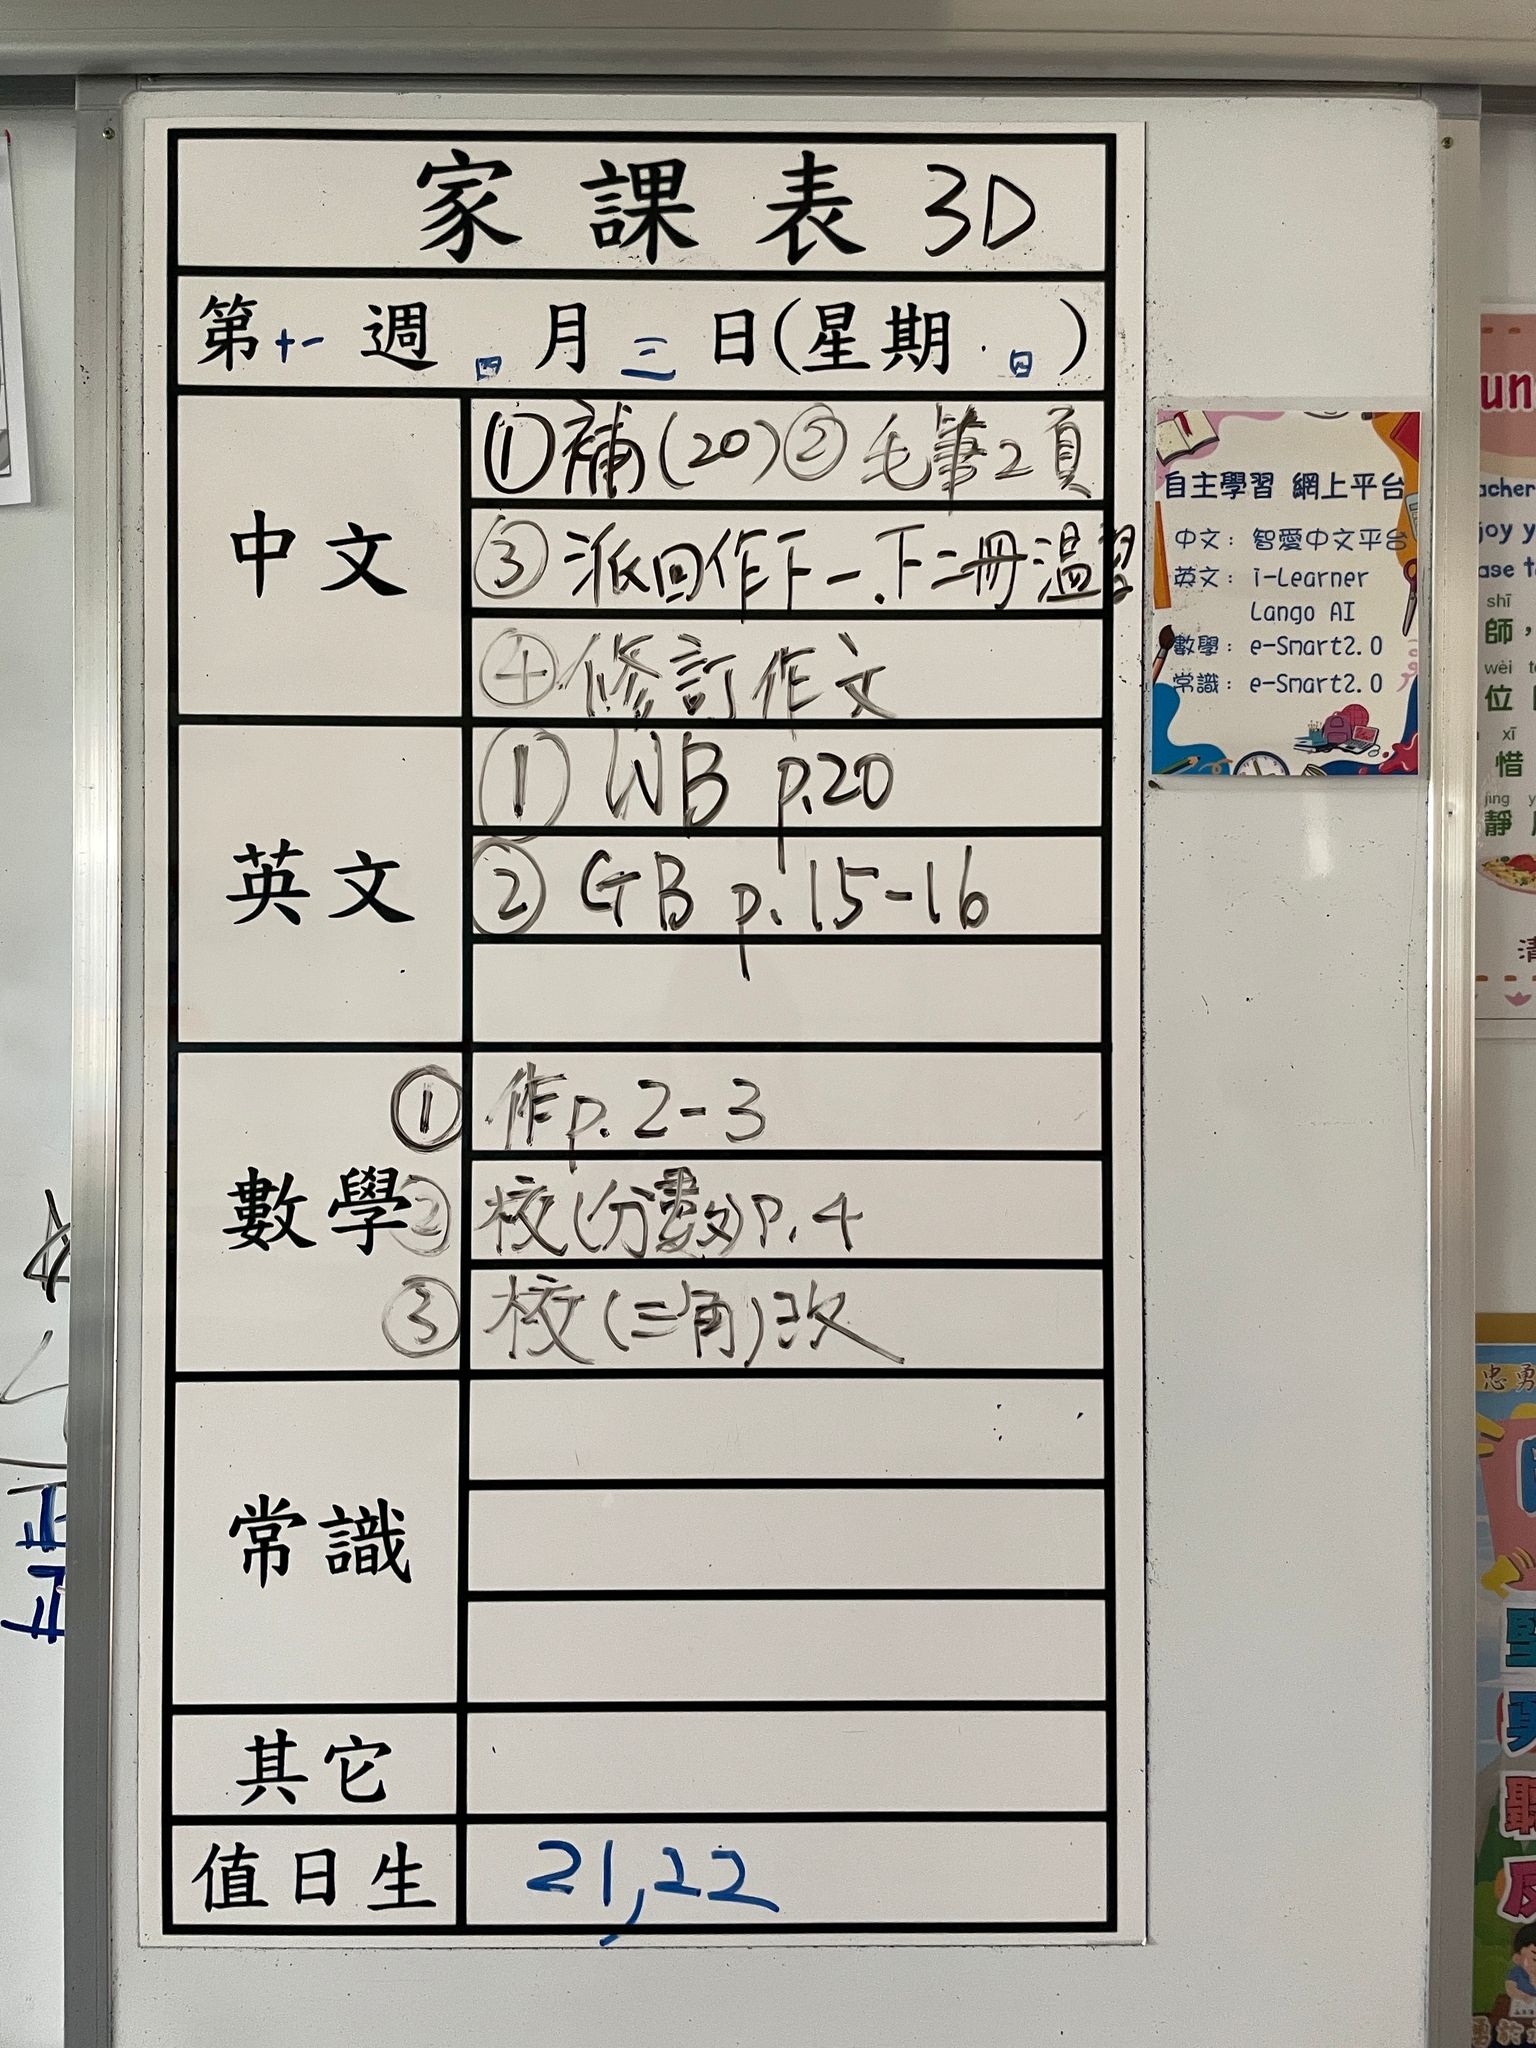 家課表 3D
第十一週 四月三日(星期四)
中文
①補(20)②毛筆2頁
③派回作下一.下二冊溫習
④修訂作文
英文
① WB p.20
② GB p.15-16
數學
① 作p.2-3
② 校(分數)P.4
③ 校(三角)改
常識
其它
值日生
21,22
自主學習 網上平台
中文：智愛中文平台
英文：i-Learner
Lango AI
數學：e-Smart2.0
常識：e-Smart2.0
un
acher
joy y
ase t
shī
師，
wèi
位
xī
惜
jìng
靜
忠勇